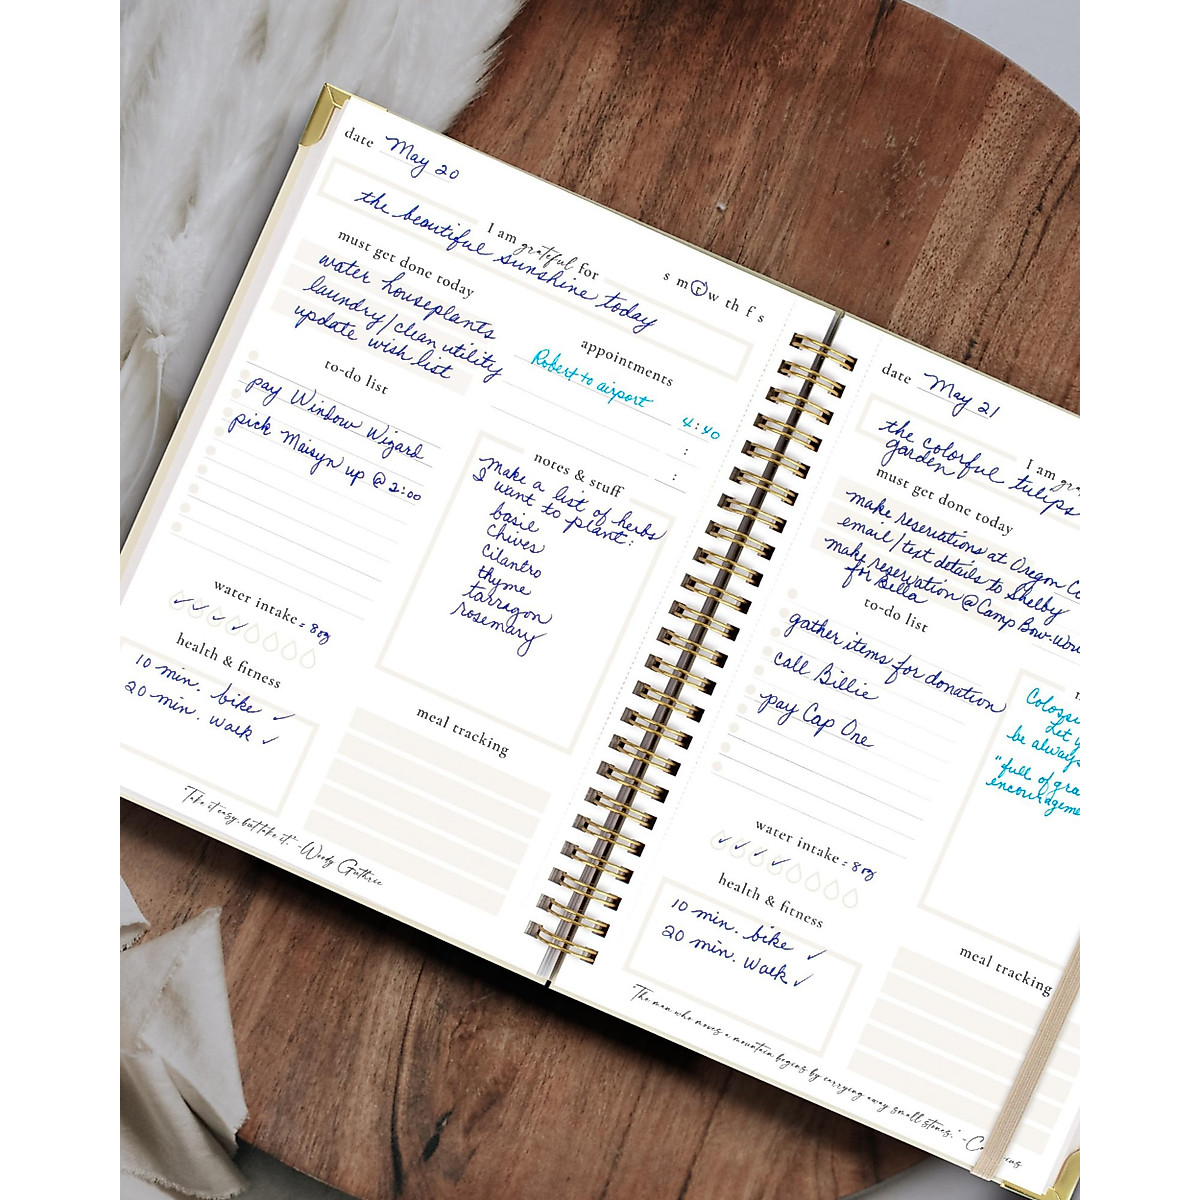 date May 20
I am grateful for
the beautiful sunshine today
s m t w th f s
must get done today
water houseplants
laundry/clean utility
update wish list
appointments
Robert to airport 4:40
:
:
to-do list
pay Window Wizard
pick Maisyn up @ 2:00
notes & stuff
make a list of herbs
I want to plant:
basil
Chives
cilantro
thyme
tarragon
rosemary
water intake = 8oz
health & fitness
10 min. bike ✓
20 min. walk ✓
meal tracking
"Take it easy, but take it." -Woody Guthrie
date May 21
I am gra
the colorful tulips
garden
must get done today
make reservations at Oregon Co
email/text details to Shelby
make reservation @ Camp Bow-Wow
for Bella
to-do list
gather items for donation
call Billie
pay Cap One
Coloss
Let y
be always
"full of gra
encourageme
water intake = 8oz
health & fitness
10 min. bike ✓
20 min. walk ✓
meal tracking
"The man who moves a mountain begins by carrying away small stones." -